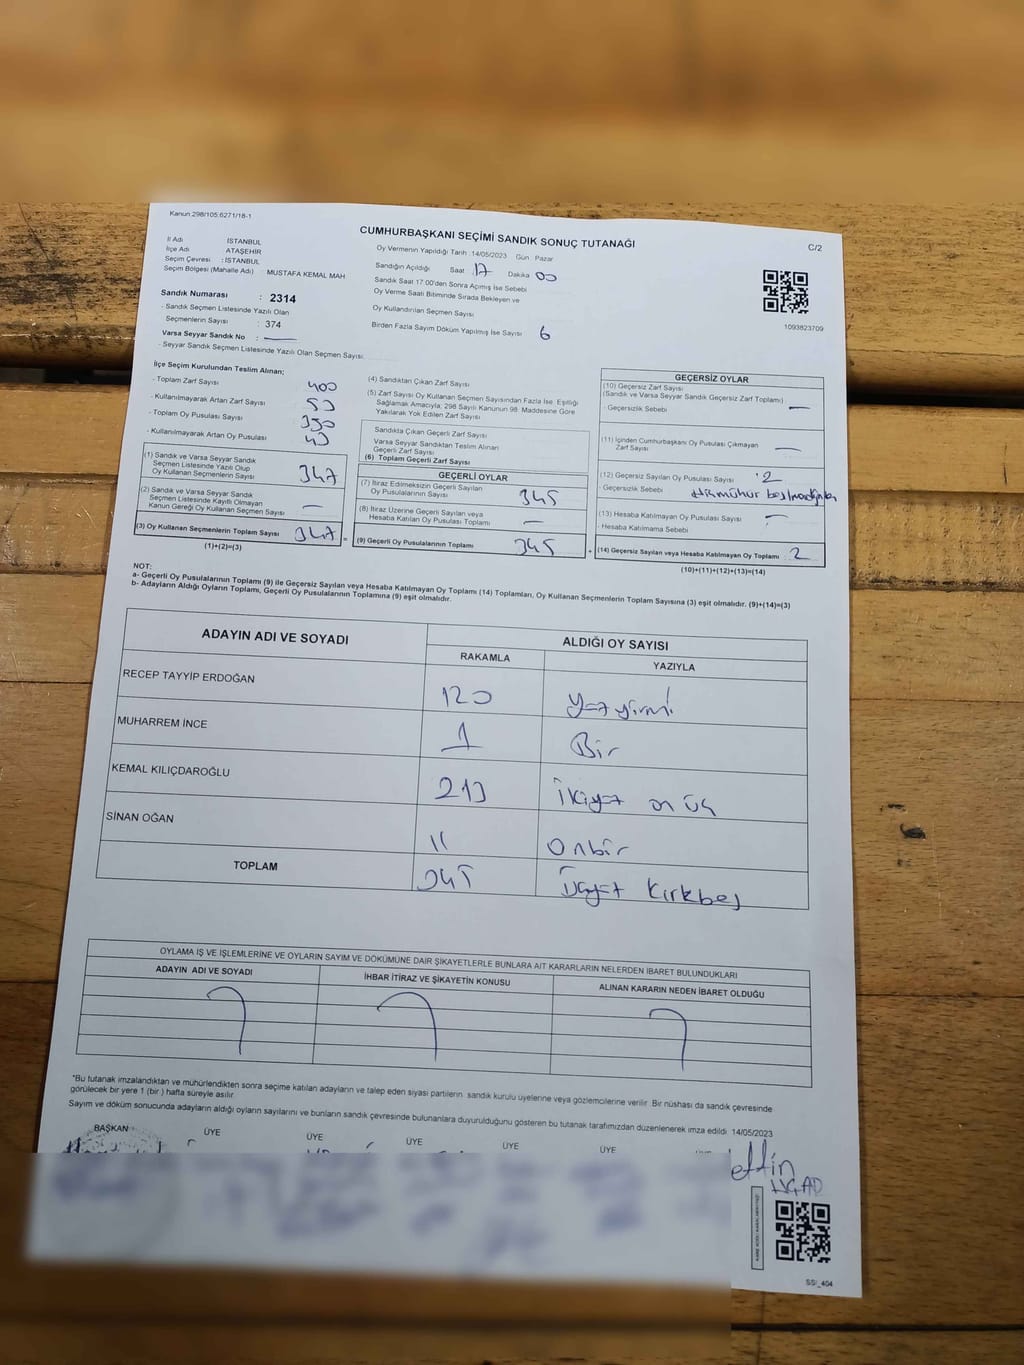 Kanun:298/105;6271/18-1
CUMHURBAŞKANI SEÇİMİ SANDIK SONUÇ TUTANAĞI
C/2
İl Adı : İSTANBUL
İlçe Adı : ATAŞEHİR
Seçim Çevresi : İSTANBUL
Seçim Bölgesi (Mahalle Adı) : MUSTAFA KEMAL MAH
Sandık Numarası : 2314
- Sandık Seçmen Listesinde Yazılı Olan
Seçmenlerin Sayısı : 374
Varsa Seyyar Sandık No : —
- Seyyar Sandık Seçmen Listesinde Yazılı Olan Seçmen Sayısı
Oy Vermenin Yapıldığı Tarih :14/05/2023 Gün : Pazar
Sandığın Açıldığı Saat 17 Dakika 00
Sandık Saat 17:00'den Sonra Açılmış İse Sebebi
Oy Verme Saati Bitiminde Sırada Bekleyen ve
Oy Kullandırılan Seçmen Sayısı
Birden Fazla Sayım Döküm Yapılmış İse Sayısı 6
1093823709
İlçe Seçim Kurulundan Teslim Alınan;
- Toplam Zarf Sayısı 400
- Kullanılmayarak Artan Zarf Sayısı 53
- Toplam Oy Pusulası Sayısı 390
- Kullanılmayarak Artan Oy Pusulası 43
(1) Sandık ve Varsa Seyyar Sandık
Seçmen Listesinde Yazılı Olup
Oy Kullanan Seçmenlerin Sayısı 347
(2) Sandık ve Varsa Seyyar Sandık
Seçmen Listesinde Kayıtlı Olmayan
Kanun Gereği Oy Kullanan Seçmen Sayısı —
(3) Oy Kullanan Seçmenlerin Toplam Sayısı 347 =
(1)+(2)=(3)
(4) Sandıktan Çıkan Zarf Sayısı
(5) Zarf Sayısı Oy Kullanan Seçmen Sayısından Fazla İse, Eşitliği
Sağlamak Amacıyla; 298 Sayılı Kanunun 98. Maddesine Göre
Yakılarak Yok Edilen Zarf Sayısı
Sandıkta Çıkan Geçerli Zarf Sayısı
Varsa Seyyar Sandıktan Teslim Alınan
Geçerli Zarf Sayısı
(6) Toplam Geçerli Zarf Sayısı
GEÇERLİ OYLAR
(7) İtiraz Edilmeksizin Geçerli Sayılan
Oy Pusulalarının Sayısı 345
(8) İtiraz Üzerine Geçerli Sayılan veya
Hesaba Katılan Oy Pusulası Toplamı —
(9) Geçerli Oy Pusulalarının Toplamı 345 +
GEÇERSİZ OYLAR
(10) Geçersiz Zarf Sayısı
(Sandık ve Varsa Seyyar Sandık Geçersiz Zarf Toplamı) —
- Geçersizlik Sebebi
(11) İçinden Cumhurbaşkanı Oy Pusulası Çıkmayan
Zarf Sayısı —
(12) Geçersiz Sayılan Oy Pusulası Sayısı 2
- Geçersizlik Sebebi
(13) Hesaba Katılmayan Oy Pusulası Sayısı —
- Hesaba Katılmama Sebebi
(14) Geçersiz Sayılan veya Hesaba Katılmayan Oy Toplamı 2
(10)+(11)+(12)+(13)=(14)
NOT:
a- Geçerli Oy Pusulalarının Toplamı (9) ile Geçersiz Sayılan veya Hesaba Katılmayan Oy Toplamı (14) Toplamları, Oy Kullanan Seçmenlerin Toplam Sayısına (3) eşit olmalıdır. (9)+(14)=(3)
b- Adayların Aldığı Oyların Toplamı, Geçerli Oy Pusulalarının Toplamına (9) eşit olmalıdır.
ADAYIN ADI VE SOYADI
ALDIĞI OY SAYISI
RAKAMLA YAZIYLA
RECEP TAYYİP ERDOĞAN 120 Yüzyirmi
MUHARREM İNCE 1 Bir
KEMAL KILIÇDAROĞLU 213 İkiyüz on üç
SİNAN OĞAN 11 Onbir
TOPLAM 345 Üçyüz Kırkbeş
OYLAMA İŞ VE İŞLEMLERİNE VE OYLARIN SAYIM VE DÖKÜMÜNE DAİR ŞİKAYETLERLE BUNLARA AİT KARARLARIN NELERDEN İBARET BULUNDUKLARI
ADAYIN ADI VE SOYADI İHBAR İTİRAZ VE ŞİKAYETİN KONUSU ALINAN KARARIN NEDEN İBARET OLDUĞU
"Bu tutanak imzalandıktan ve mühürlendikten sonra seçime katılan adayların ve talep eden siyasi partilerin sandık kurulu üyelerine veya gözlemcilerine verilir. Bir nüshası da sandık çevresinde
görülecek bir yere 1 (bir ) hafta süreyle asılır.
Sayım ve döküm sonucunda adayların aldığı oyların sayılarını ve bunların sandık çevresinde bulunanlara duyurulduğunu gösteren bu tutanak tarafımızdan düzenlenerek imza edildi. 14/05/2023
BAŞKAN ÜYE ÜYE ÜYE ÜYE ÜYE
SSİ_404